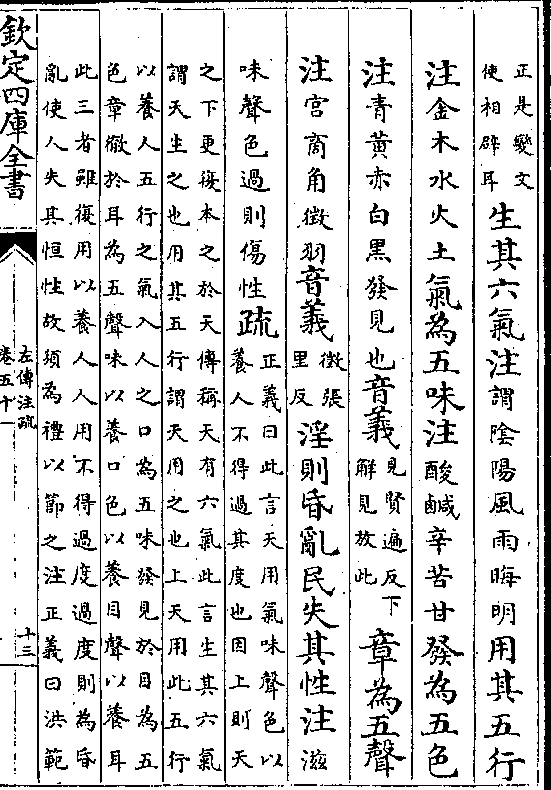 正是變文使相辟耳生其六氣注謂陰陽風雨晦明用其五行
注金木水火土氣為五味注酸鹹辛苦甘發為五色
注青黃赤白黑發見也音義見賢遍反下解見放此章為五聲
注宮商角徵羽音義徵張里反淫則昏亂民失其性注滋
味聲色過則傷性疏正義曰此言天用氣味聲色以養人不得過其度也因上則天
之下更復本之於天傳稱天有六氣此言生其六氣
謂天生之也用其五行謂天用之也上天用此五行
以養人五行之氣入人之口為五味發見於目為五
色章徹於耳為五聲味以養口色以養目聲以養耳
此三者雖復用以養人人用不得過度過度則為昏
亂使人失其恒性故須為禮以節之注正義曰洪範
欽定四庫全書
左傳注疏
卷五十一
十三